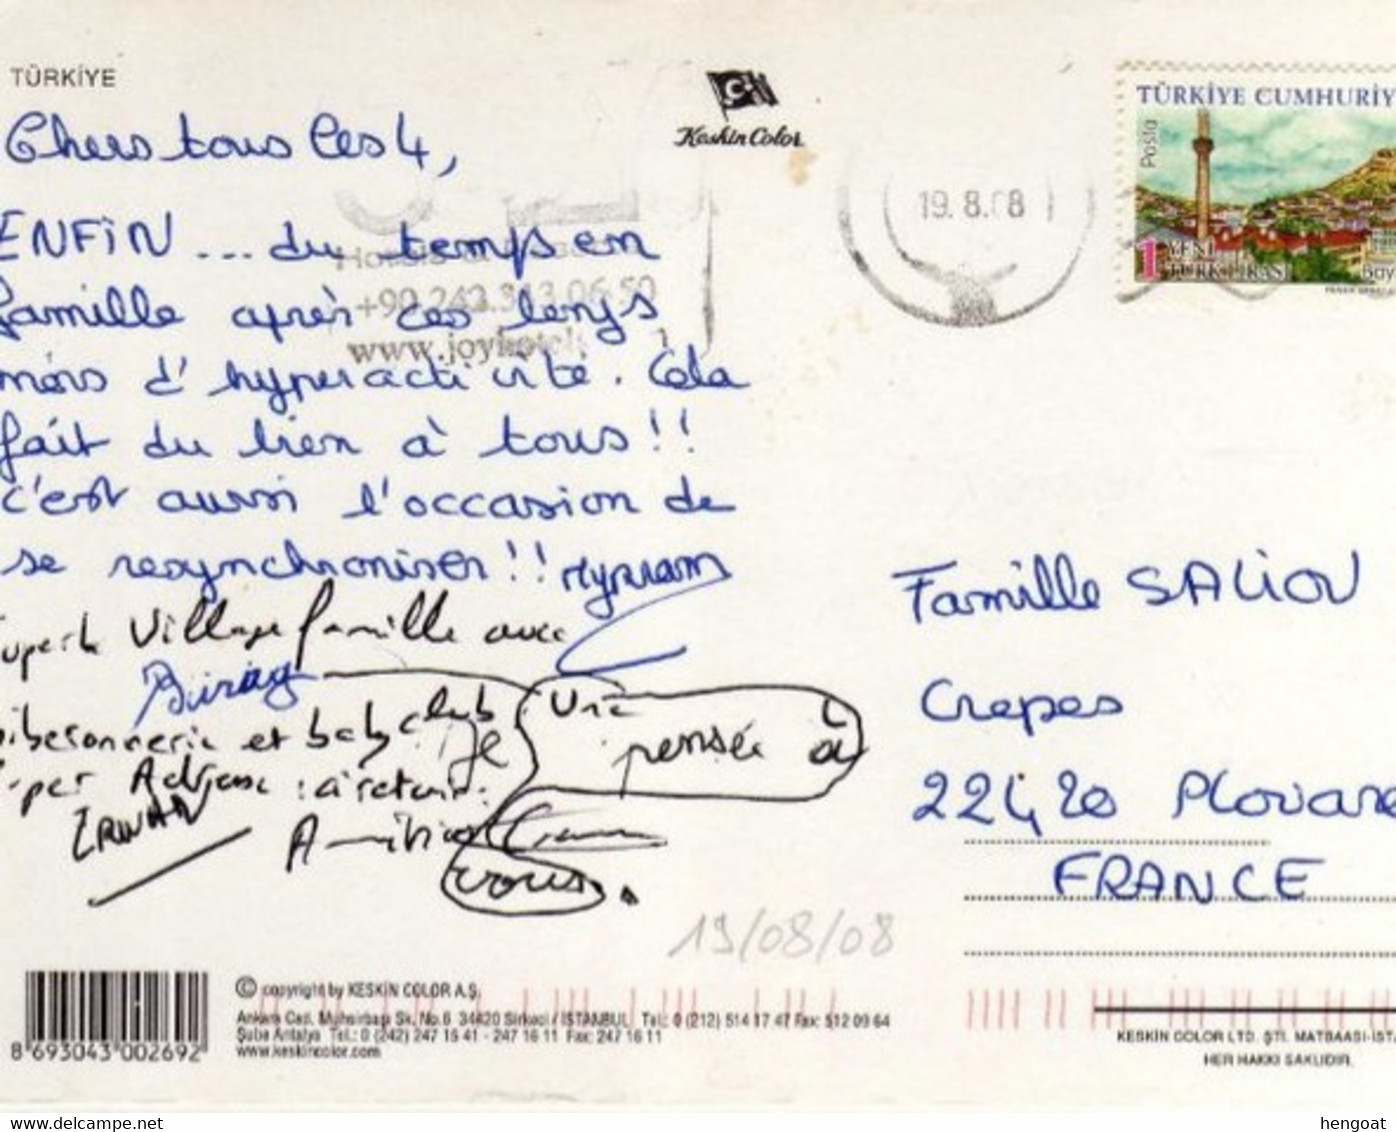 TÜRKİYE
Chers tous les 4,
ENFIN ... du temps en
famille après ces longs
mois d'hyperactivité. Cela
fait du bien à tous!!
c'est aussi l'occasion de
se resynchroniser!! Myriam
Village famille avec
Buray
biberonnerie et baby club
super Adresse : à retenir.
ERWAN
Amitiés
Une
pensée à
vous.
Keskin Color
+90 242 313 06 50
www.joyhotels
19.8.08
TÜRKİYE CUMHURİY
Posta
1 YENİ
TÜRK LİRASI
Boy
Famille SALIOU
Crepes
22420 Plouare
FRANCE
19/08/08
8 693043 002692
© copyright by KESKİN COLOR A.Ş.
Ankara Cad. Mühürbaşı Sk. No.6 34420 Sirkeci / İSTANBUL Tel: 0 (212) 514 17 47 Fax: 512 09 64
Şube Antalya Tel.: 0 (242) 247 15 41 - 247 16 11 Fax: 247 16 11
www.keskincolor.com
KESKİN COLOR LTD. ŞTİ. MATBAASI-İSTA
HER HAKKI SAKLIDIR.
hengoat